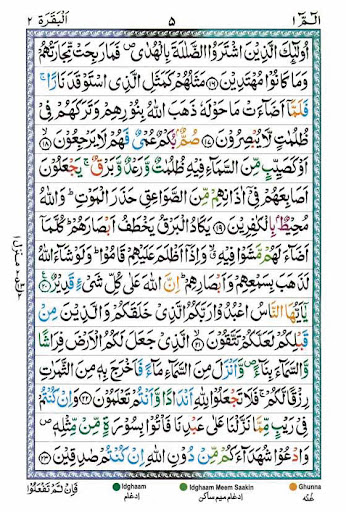 الٓمّٓ ١ ٥ اَلْبَقَرَة ٢
اُولٰٓئِكَ الَّذِيْنَ اشْتَرَوُا الضَّلٰلَةَ بِالْهُدٰى ۪ فَمَا رَبِحَتْ تِّجَارَتُهُمْ
وَمَا كَانُوْا مُهْتَدِيْنَ ﴿١٦﴾ مَثَلُهُمْ كَمَثَلِ الَّذِى اسْتَوْقَدَ نَارًا ۚ
فَلَمَّآ اَضَآءَتْ مَا حَوْلَهٗ ذَهَبَ اللّٰهُ بِنُوْرِهِمْ وَتَرَكَهُمْ فِىْ
ظُلُمٰتٍ لَّا يُبْصِرُوْنَ ﴿١٧﴾ صُمٌّۢ بُكْمٌ عُمْىٌ فَهُمْ لَا يَرْجِعُوْنَ ﴿١٨﴾
اَوْ كَصَيِّبٍ مِّنَ السَّمَآءِ فِيْهِ ظُلُمٰتٌ وَّرَعْدٌ وَّبَرْقٌ ۚ يَجْعَلُوْنَ
اَصَابِعَهُمْ فِىْٓ اٰذَانِهِمْ مِّنَ الصَّوَاعِقِ حَذَرَ الْمَوْتِ ؕ وَاللّٰهُ
مُحِيْطٌۢ بِالْكٰفِرِيْنَ ﴿١٩﴾ يَكَادُ الْبَرْقُ يَخْطَفُ اَبْصَارَهُمْ ؕ كُلَّمَآ
اَضَآءَ لَهُمْ مَّشَوْا فِيْهِ ۙ وَاِذَآ اَظْلَمَ عَلَيْهِمْ قَامُوْا ؕ وَلَوْ شَآءَ اللّٰهُ
لَذَهَبَ بِسَمْعِهِمْ وَاَبْصَارِهِمْ ؕ اِنَّ اللّٰهَ عَلٰى كُلِّ شَىْءٍ قَدِيْرٌ ﴿٢٠﴾
يٰٓاَيُّهَا النَّاسُ اعْبُدُوْا رَبَّكُمُ الَّذِىْ خَلَقَكُمْ وَالَّذِيْنَ مِنْ
قَبْلِكُمْ لَعَلَّكُمْ تَتَّقُوْنَ ﴿٢١﴾ الَّذِىْ جَعَلَ لَكُمُ الْاَرْضَ فِرَاشًا
وَّالسَّمَآءَ بِنَآءً ۪ وَّاَنْزَلَ مِنَ السَّمَآءِ مَآءً فَاَخْرَجَ بِهٖ مِنَ الثَّمَرٰتِ
رِزْقًا لَّكُمْ ۚ فَلَا تَجْعَلُوْا لِلّٰهِ اَنْدَادًا وَّاَنْتُمْ تَعْلَمُوْنَ ﴿٢٢﴾ وَاِنْ كُنْتُمْ
فِىْ رَيْبٍ مِّمَّا نَزَّلْنَا عَلٰى عَبْدِنَا فَاْتُوْا بِسُوْرَةٍ مِّنْ مِّثْلِهٖ ۪
وَادْعُوْا شُهَدَآءَكُمْ مِّنْ دُوْنِ اللّٰهِ اِنْ كُنْتُمْ صٰدِقِيْنَ ﴿٢٣﴾
فَاِنْ لَّمْ تَفْعَلُوْا
Idghaam ادغام
Idghaam Meem Saakin ادغام میم ساکن
Ghunna غُنّہ